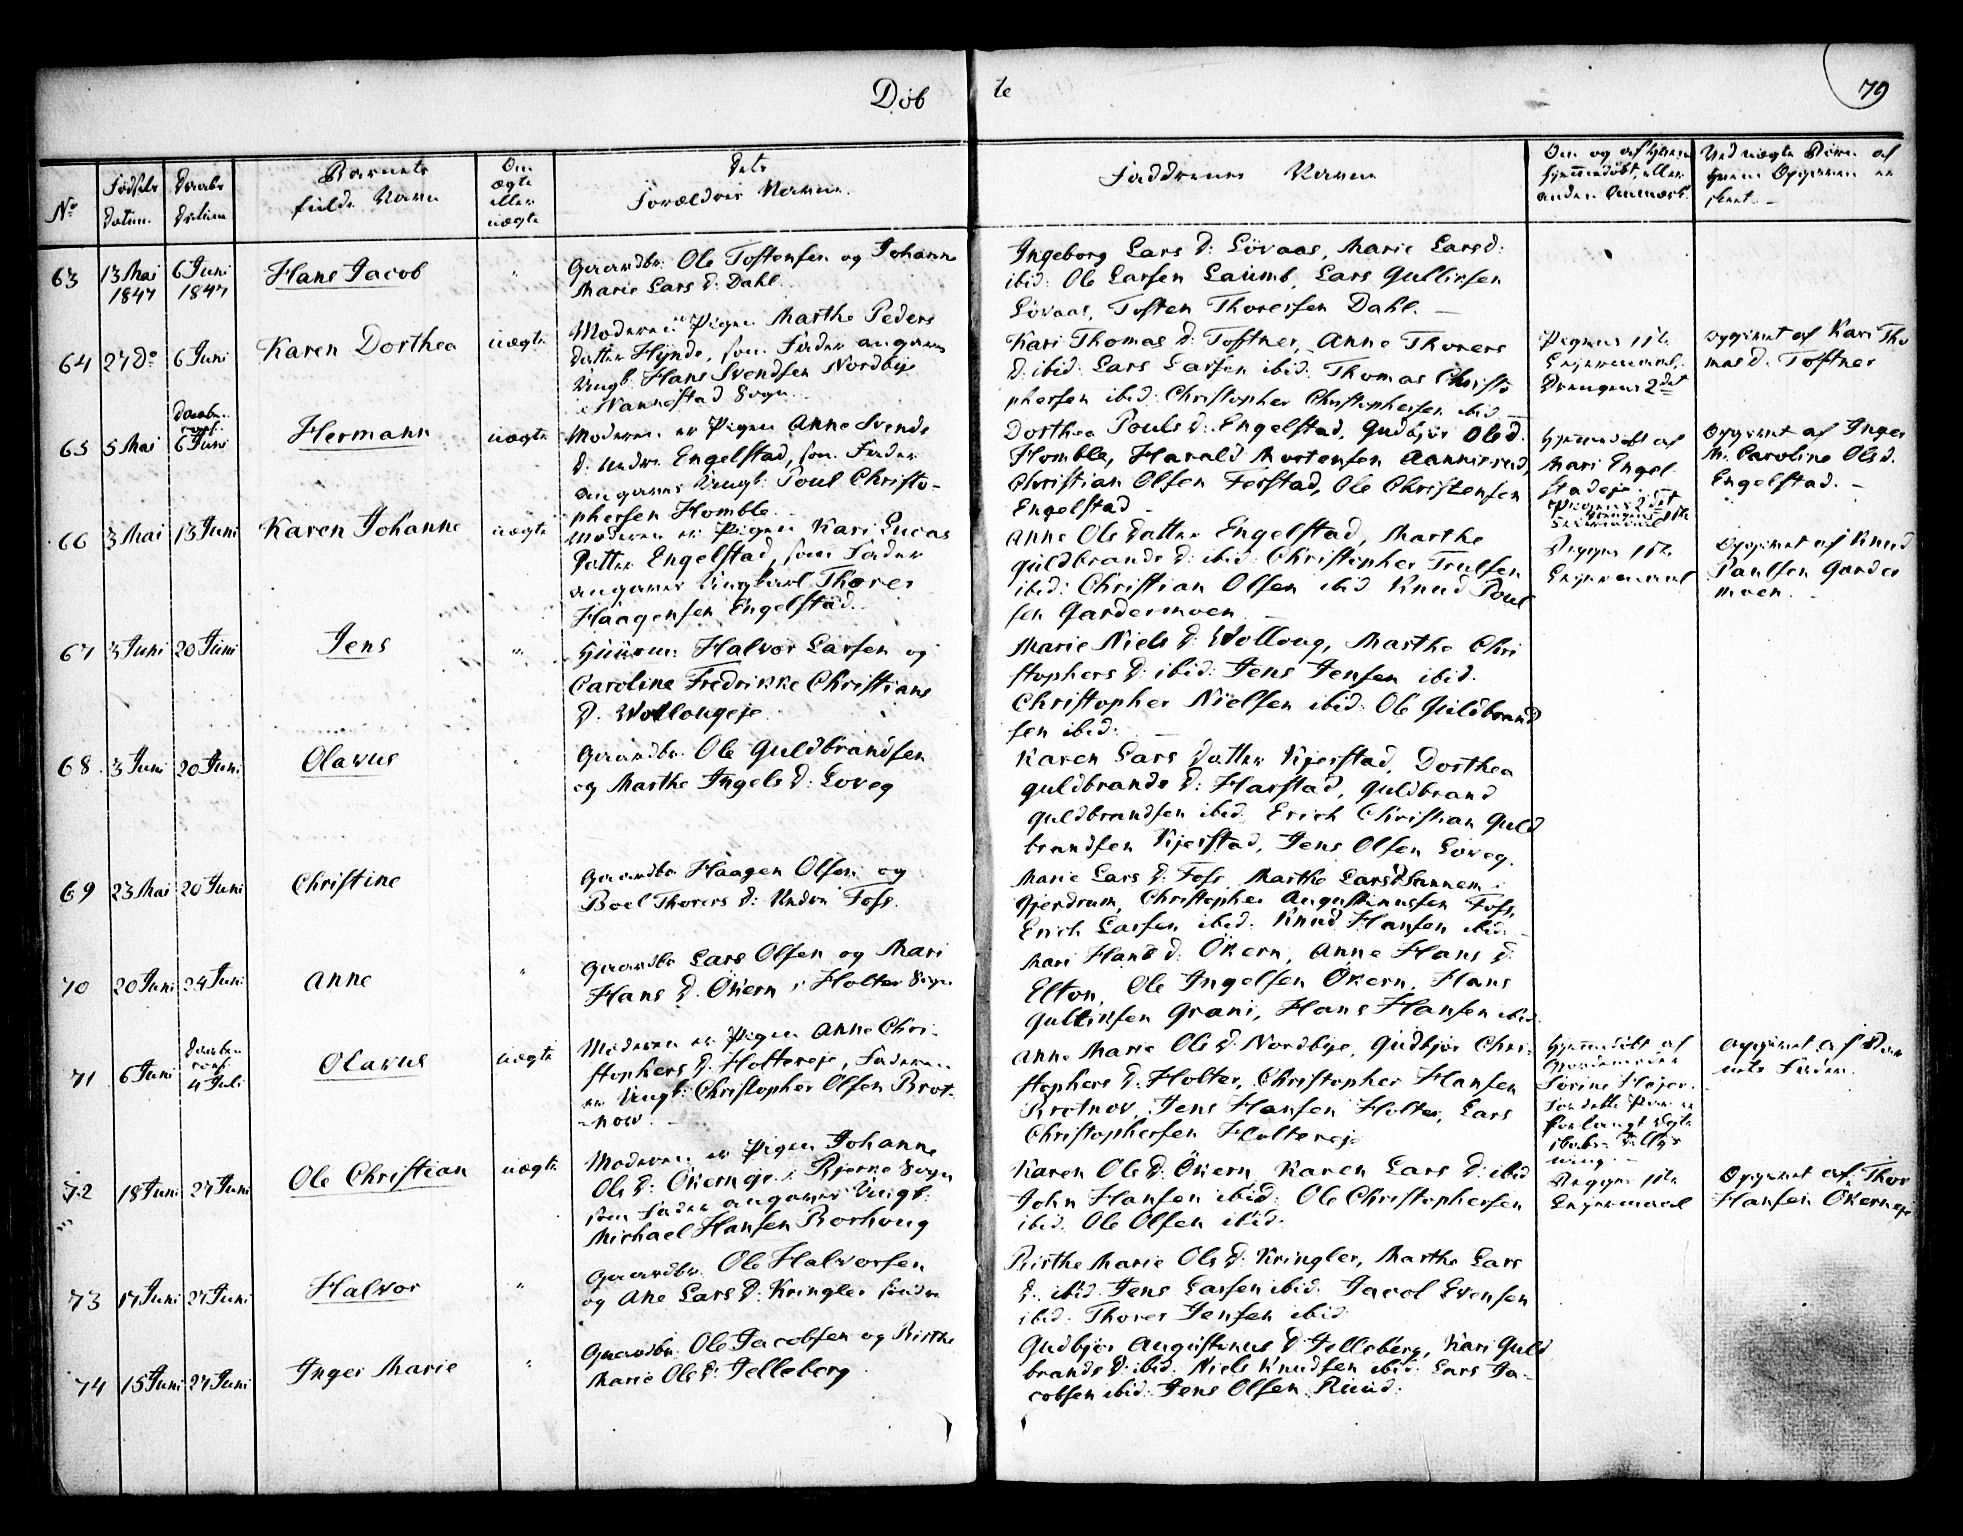 Døb
te
79
No
Fødsels
Datum.
Daabs
Datum
Barnets
fulde Navn
Om
ægte
eller
uægte
Dets
Forældres Navne.
Faddrenes Navne
Om og af hvem
hjemmedøbt, eller
anden Anmærk:
Ved uægte Børn af
hvem Opgaven er
skeet. -
63
13 Mai
1847
6 Juni
1847
Hans Jacob
"
Gaardbr. Ole Tostensen og Johanne
Marie Lars D: Dahl.
Ingeborg Lars D: Lövaas, Marie Larsd:
ibid: Ole Larsen Laumb, Lars Gullirsen
Lövaas, Tosten Thoressen Dahl. -
64
27 do
6 Juni
Karen Dorthea
uægte
Moderen er Pigen Marthe Peders
datter Hynde, som Fader angaves
Ungk: Hans Svendsen Nordbye
i Nannestad Sogn.
Kari Thomas D: Toftner, Anne Thorers
D: ibid: Lars Larsen ibid: Thomas Christo
phersen ibid: Christopher Christophersen ibid -
Pigens 1ste
Leiermaal,
Drengens 2det
opgivet af Kari Tho
mas D: Toftner
65
5 Mai
Daabs
6 Juni
Hermann
uægte
Moderen er Pigen Anne Svends
D: Nedre Engelstad, som Fader
angaves Ungk: Poul Christo-
phersen Homble.
Dorthea Pouls D: Engelstad, Gudbjør Ole d.
Homble, Harald Mortensen
Christian Olsen Ferstad, Ole Christensen
Engelstad -
Hjemmedøbt af
Mari Engel
stadeje. -
Pigens 2det
Drengens 1ste
Leiermaal
Opgivet af Inger
M. Caroline Ols d.
Engelstad. -
66
3 Mai
13 Juni
Karen Johanne
uægte
Moderen er Pigen Kari Lucas
Datter Engelstad, som Fader
angaves Ungkarl Thorer
Haagensen Engelstad.
Anne Ole Datter Engelstad, Marthe
Guldbrands D: ibid: Christopher Trulsen
ibid: Christian Olsen ibid Knud Poul
sen Gardermoen -
Begges 1ste
Leiermaal
Opgivet af Knud
Paulsen Garder
moen.
67
3 Juni
20 Juni
Jens
"
Huusm: Halvor Larsen og
Caroline Fredrikke Christians
D: Wollougeje
Marie Niels D: Wolloug, Marthe Chri
stophers D: ibid: Jens Jensen ibid.
Christopher Nielsen ibid: Ole Guldbrand
sen ibid:
68.
3 Juni
20 Juni
Olavus
"
Gaardbr. Ole Guldbrandsen
og Marthe Ingels D: Loveg
Karen Lars Datter Kjerstad, Dorthea
Guldbrands D: Harstad, Guldbrand
Guldbrandsen ibid. Erich Christian Guld
brandsen Kjerstad, Jens Olsen Loveg.
69
23 Mai
20 Juni
Christine
Gaardbr Haagen Olsen og
Boel Thorers D: Nedre Foss.
Marie Lars D: Foss, Marthe Lars D
Gjerdrum, Christopher Augustinussen Foss,
Erich Larsen ibid: Knud Hansen ibid. -
70
20 Juni
24 Juni
Anne
"
Gaardbr Lars Olsen og Mari
Hans D: Økern i Holter Sogn
Mari Hans D: Økern, Anne Hans D:
Elton, Ole Ingelsen Økern, Hans
Gullirsen Grani, Hans Hansen ibid
71
6 Juni
Daaben
4 Juli
Olavus
uægte
Moderen er Pigen Anne Chri-
stophers D: Holtereje, Faderen
er Ungk: Christopher Olsen Brot-
-now. -
Anne Marie Ols D: Nordbye, Gudbjør Chri-
stophers D: Holter, Christopher Hansen
Brotnov, Jens Hansen Holter, Lars
Christophersen Holtereje
Hjemmedøbt af
Gjordemoder
Sørine Høyer.
opgivet af Bar
nets Fader.
72
18 Juni
27 Juni
Ole Christian
uægte
Moderen er Pigen Johanne
Ole D: Økernge. i Bjerke Sogn
som Fader angaves Ungk:
Michael Hansen Borhoug
Karen Ole D: Økern, Karen Lars D: ibid
John Hansen ibid: Ole Christophersen
ibid. Ole Olsen ibid.
Begges 1ste
Leiermaal
Opgivet af Thor
Hansen Økerneje
73
17 Juni
27 Juni
Halvor
"
Gaardbr. Ole Halvorsen
og Ane Lars D: Kringler søndre
Birthe Marie Ols D: Kringler, Marthe Lars
D. ibid Jens Larsen ibid. Jacob Evensen
ibid: Thorer Jensen ibid
74
15 Juni
27 Juni
Inger Marie
"
Gaardbr. Ole Jacobsen og Birthe
Marie Ole D: Jelleberg
Gudbjør Augustinus D: Jelleberg, Kari Guld
brands D: ibid. Niels Knudsen ibid: Lars Ja-
cobsen ibid: Jens Olsen Ruud.